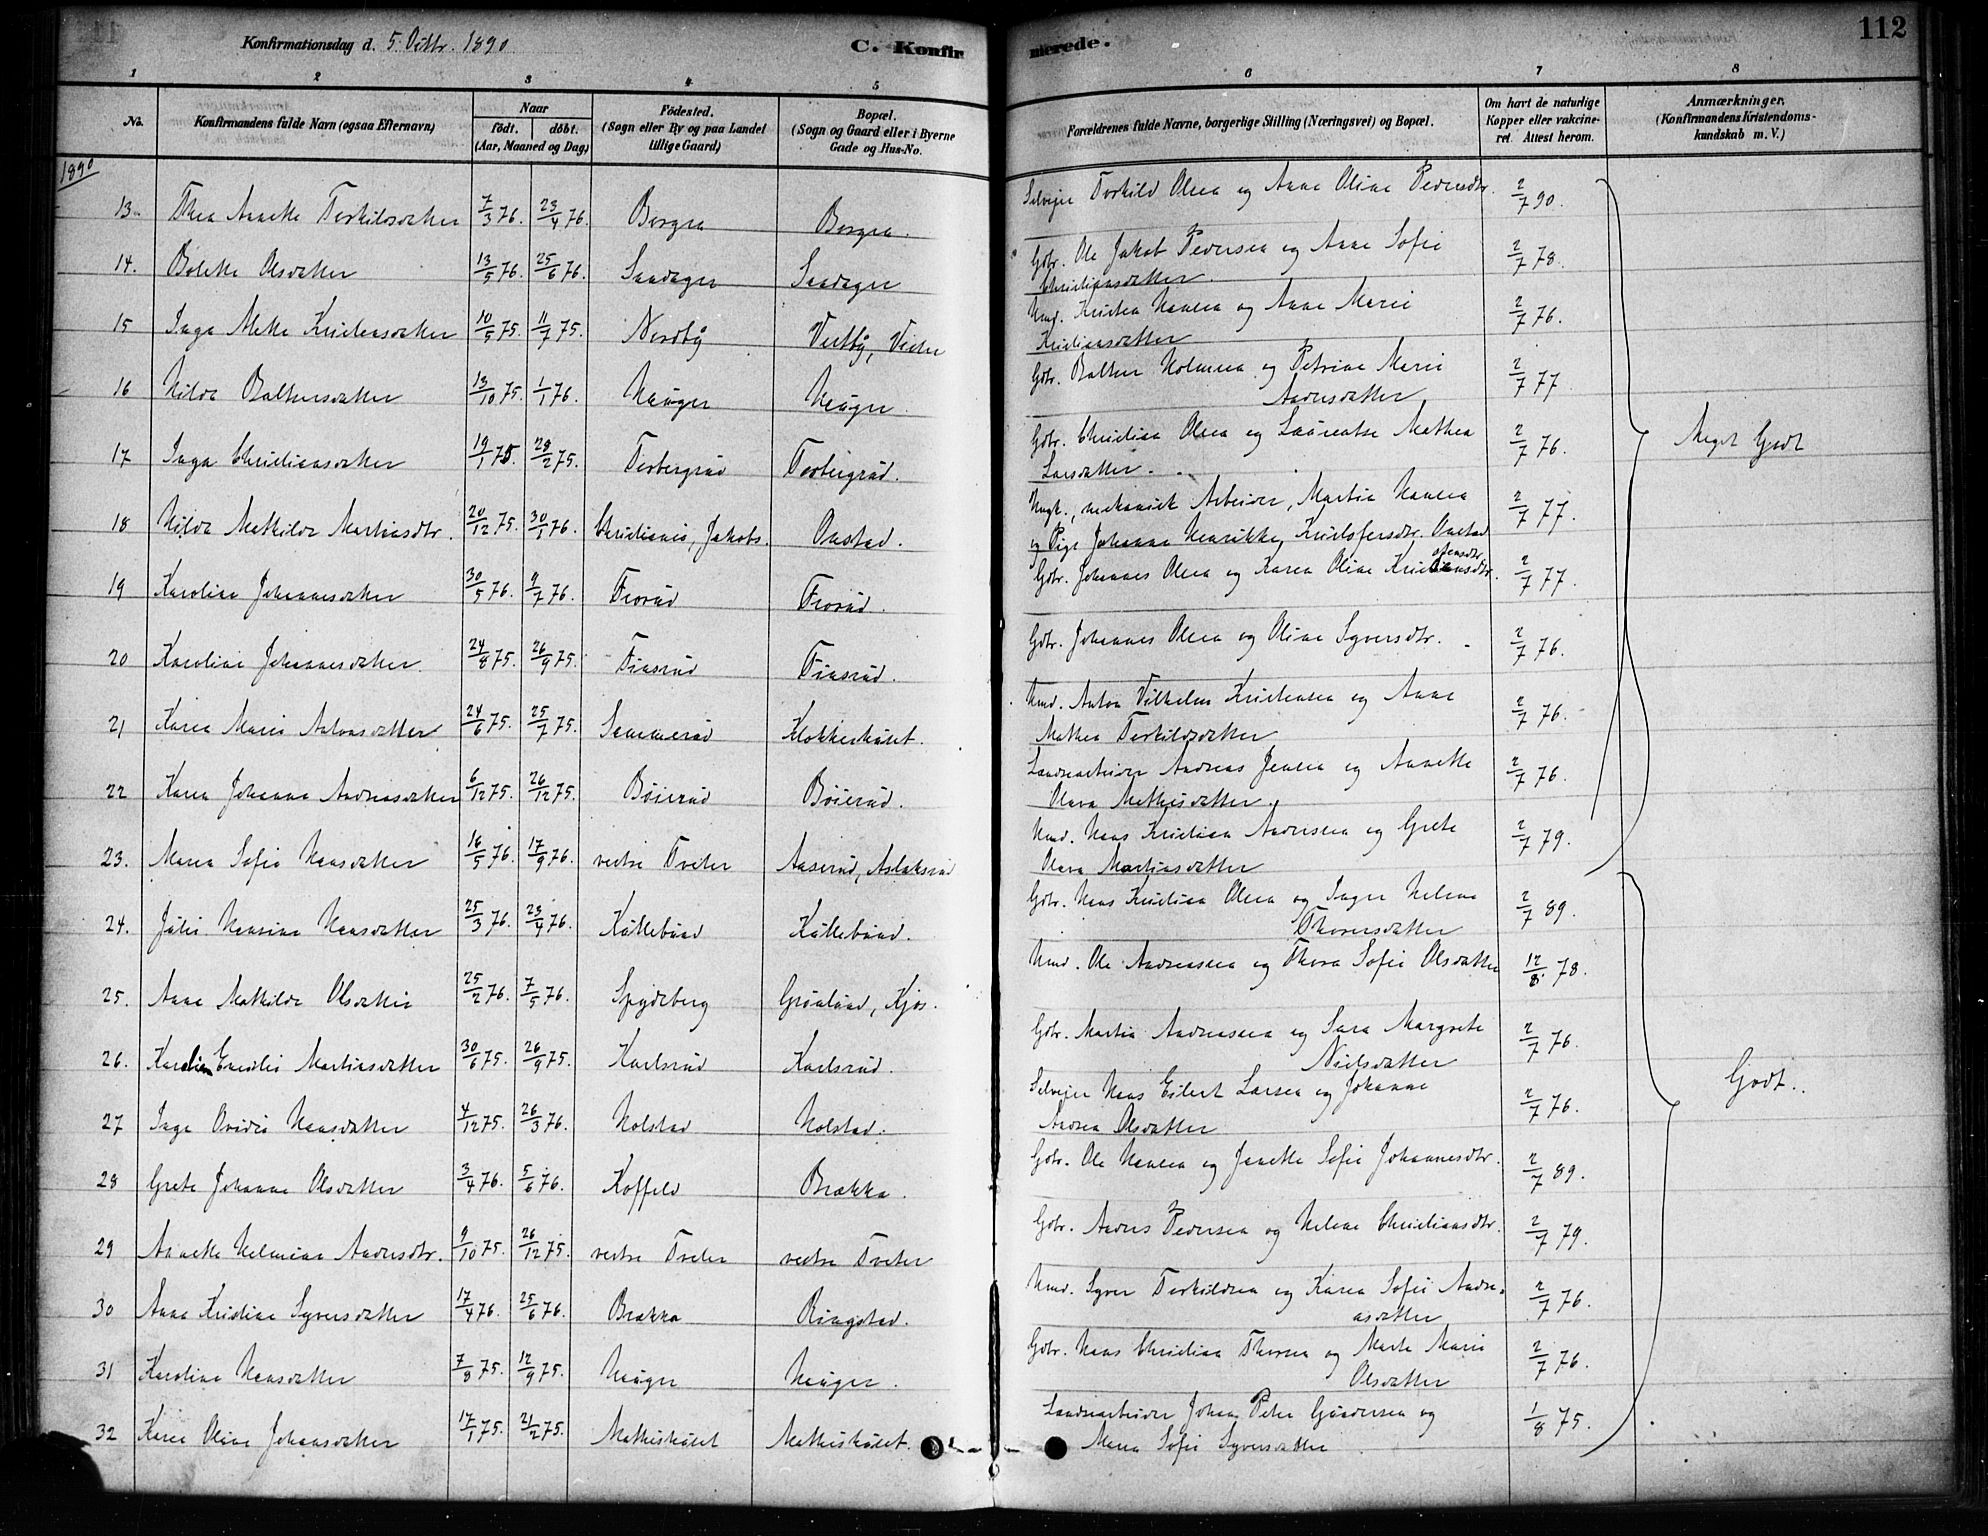 Konfirmationsdag d. 5. Octbr. 1890
C. Konfirmerede.
112
1 2 3 4 5 6 7 8
No.
Konfirmandens fulde Navn (ogsaa Efternavn)
Naar
født. døbt.
(Aar, Maaned og Dag)
Fødested.
(Sogn eller By og paa Landet
tillige Gaard)
Bopæl.
(Sogn og Gaard eller i Byerne
Gade og Hus-No.
Forældrenes fulde Navne, borgerlige Stilling (Næringsvei) og Bopæl.
Om havt de naturlige
Kopper eller vakcine-
ret. Attest herom.
Anmærkninger.
(Konfirmandens Kristendoms-
kundskab m. V.)
1890
13. Thea Annette Terkildsdatter 7/3 76. 23/4 76. Borgen Borgen. Selveier Terkild Olsen og Anne Oline Pedersdtr. 2/7 90.
14. Bolette Olsdatter 13/5 76. 25/6 76. Sandager Sandager Gbr. Ole Jakob Pedersen og Anne Sofie
Christiansdatter. 2/7 78.
15 Inga Mette Kristensdatter 10/5 75. 11/7 75. Nordby Vestby, Vester Hmd. Kristen Hansen og Anne Marie
Kristiansdatter 2/7 76.
16 Hilda Baltzersdatter 13/10 75. 1/1 76. Hauger Hauger. Gbr. Baltzer Holmsen og Petrine Marie
Andersdatter 2/7 77
17 Inga Christiansdatter 19/1 75. 28/2 75. Torbergrud Torbergrud. Gbr. Christian Olsen og Laurentse Mathea
Larsdatter. 2/7 76.
18 Hilda Mathilde Martinsdtr. 20/12 75. 30/1 76. Christiania, Jakobs. Onstad. Ungk., mekanisk Arbeider, Martin Hansen
og Pige Johanne Henrikke Kristofersdtr. Onstad 2/7 77.
19 Karoline Johannesdatter 30/5 76. 9/7 76. Frorud Frorud. Gbr. Johannes Olsen og Karen Oline Kristofersdtr. 2/7 77.
20 Karoline Johannesdatter 24/8 75. 26/9 75. Finsrud Finsrud. Gbr. Johannes Olsen og Oline Syversdtr. 2/7 76.
21 Karen Marie Antonsdatter 24/6 75. 25/7 75. Sammerud Klokkerhuset. Hmd. Anton Vilhelm Kristensen og Anne
Mathea Terkildsdatter 2/7 76.
22 Karen Johanne Andreasdatter 6/12 75. 26/12 75. Böierud Böierud. Landsarbeider Andreas Jensen og Annette
Olava Mathisdatter. 2/7 76.
23. Maren Sofie Hansdatter 16/5 76. 17/9 76. vestre Tveter Aaserud, Aslaksrud Hmd. Hans Kristian Andersen og Grete
Olava Martinsdatter 2/7 79.
24. Julie Hansine Hansdatter 25/3 76. 23/4 76. Kullebund Kullebund. Gbr. Hans Kristian Olsen og Inger Helene
Thorersdatter 2/7 89.
25. Anne Mathilde Olsdatter 25/2 76. 7/5 76. Spydeberg Grönlund, Kjos. Hmd. Ole Andreassen og Thora Sofie Olsdatter 12/8 78.
26. Karoline Emilie Martinsdatter 30/6 75. 26/9 75. Karlsrud Karlsrud. Gbr. Martin Andreassen og Sara Margrete
Nielsdatter 2/7 76.
27 Inga Ovidia Hansdatter 4/12 75. 26/3 76. Holstad Holstad. Selveier Hans Eilert Larsen og Johanne
Andrea Olsdatter 2/7 76.
28 Grete Johanne Olsdatter 3/4 76. 5/6 76. Koffeld Brækka. Gbr. Ole Hansen og Janette Sofie Johannesdtr. 2/7 89.
29 Annette Helmine Andersdtr. 9/10 75. 26/12 75. vestre Tveter vestre Tveter Gbr. Anders Pedersen og Helene Christiansdtr. 2/7 79.
30 Anne Kristine Syversdatter 17/4 76. 25/6 76. Brækka Ringstad. Hmd. Syver Terkildsen og Karen Sofie Andre-
asdatter 2/7 76.
31 Karoline Hansdatter 7/8 75. 12/9 75. Hauger Hauger. Gbr. Hans Christian Thorsen og Marte Marie
Olsdatter 2/7 76.
32 Karen Oline Johansdatter 17/1 75. 21/2 75. Mathishuset Mathishuset. Landsarbeider Johan Peter Gundersen og
Maren Sofie Syversdatter 1/8 75.
Meget Godt
Godt.